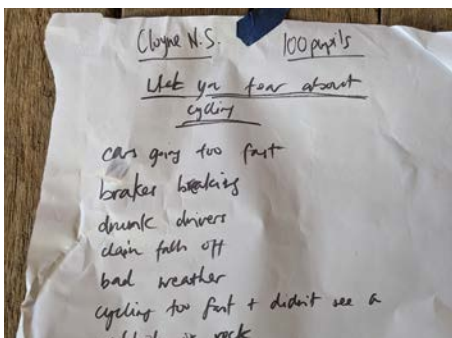 Cloyne N.S. 100 pupils
What you fear about
cycling
cars going too fast
brakes breaking
drunk drivers
chain falls off
bad weather
cycling too fast + didn't see a
rock